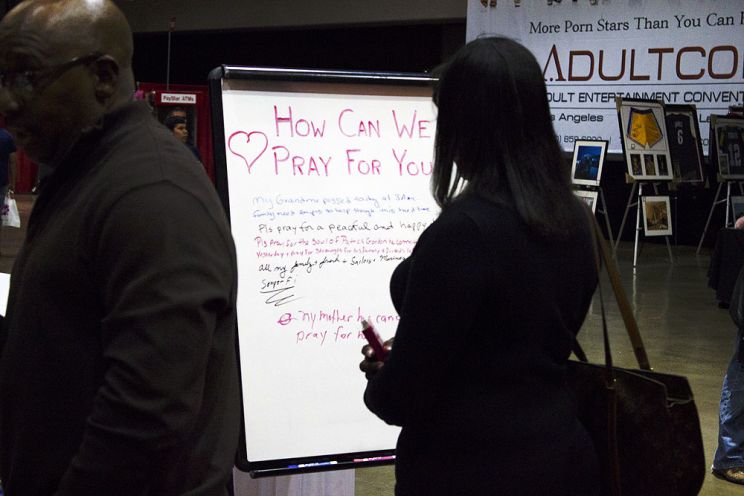 More Porn Stars Than You Can
ADULTCO
DULT ENTERTAINMENT CONVENT
os Angeles
PayStar ATMs
How Can We
Pray For You
My Grandma passed today at
family needs prayers to help through this hard time
Pls pray for a peaceful and happy
Pls Pray for the Soul of Patrick Gordon
Yesterday + pray for Strength for his family +
All my family + friends + Sailors + Marines
Semper Fi
my mother h canc
pray for h
6